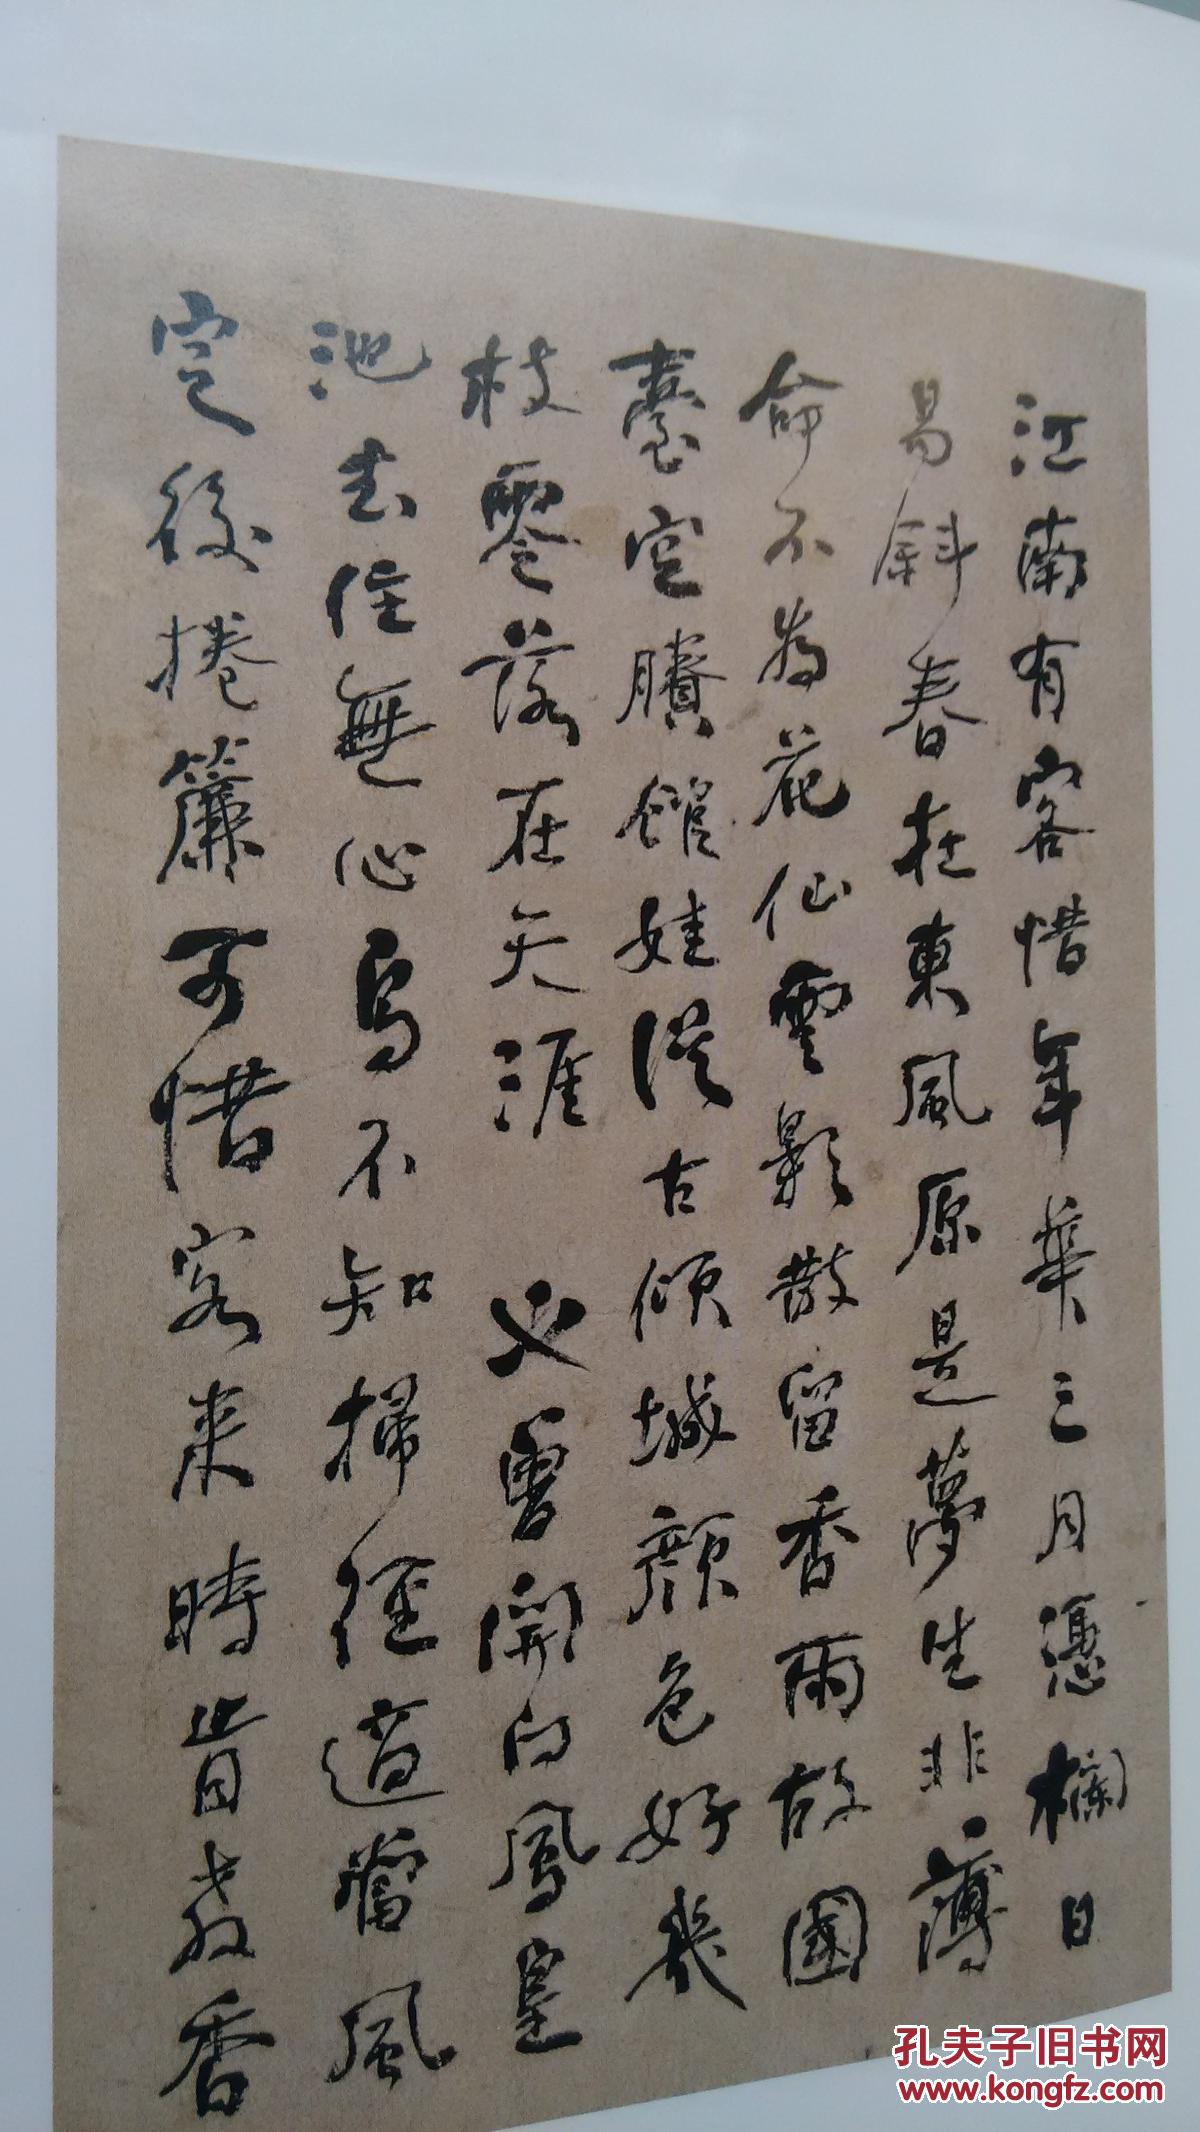 江南有客惜年華三月憑欄日
易斜春在東風原是夢生非薄
命不為花仙雲影散留香雨故國
臺空賸館娃從古傾城顏色好幾
枝零落在天涯 也曾開向鳳皇
池去住無心鳥不知掃徑適當風
定後捲簾可惜客來時昔教香
孔夫子旧书网
www.kongfz.com